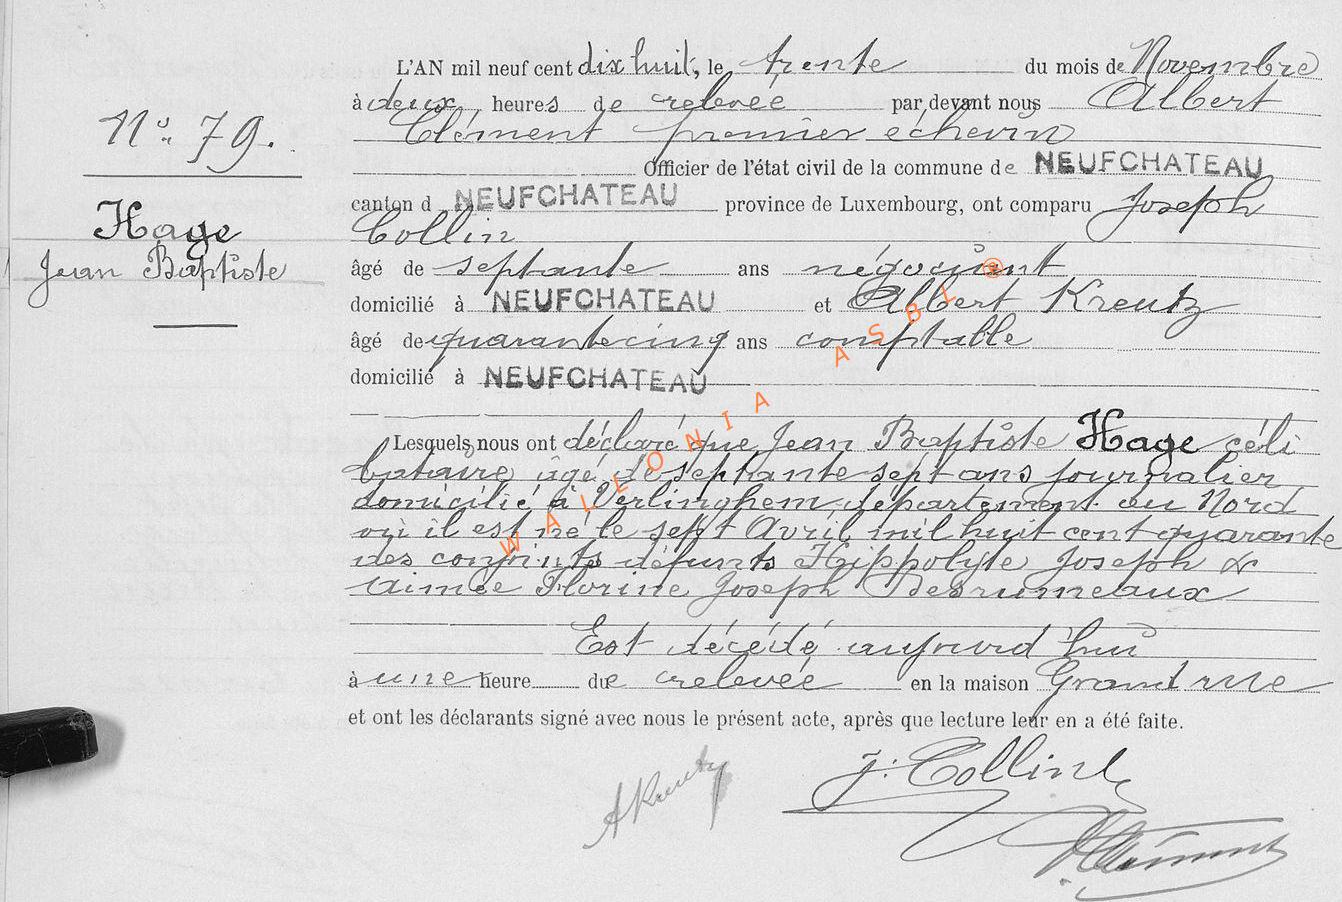 N° 79.
Hage
Jean Baptiste
L'AN mil neuf cent dix huit, le trente du mois de Novembre
à deux heures de relevée par devant nous Albert
Clément premier échevin
Officier de l'état civil de la commune de NEUFCHATEAU
canton d NEUFCHATEAU province de Luxembourg, ont comparu Joseph
Collin
âgé de septante ans négociant
domicilié à NEUFCHATEAU et Albert Kreutz
âgé de quarante cinq ans comptable
domicilié à NEUFCHATEAU
Lesquels nous ont déclaré que Jean Baptiste Hage céli
bataire âgé de septante sept ans journalier
domicilié à Verlinghem, département du Nord
où il est né le sept Avril mil huit cent quarante
des conjoints défunts Hippolyte Joseph &
Aimée Florine Joseph Desrumeaux
Est décédé aujourd'hui
à une heure de relevée en la maison Grand'rue
et ont les déclarants signé avec nous le présent acte, après que lecture leur en a été faite.
AKreutz
J. Collin
AClément
WALLONIA ASBL ®